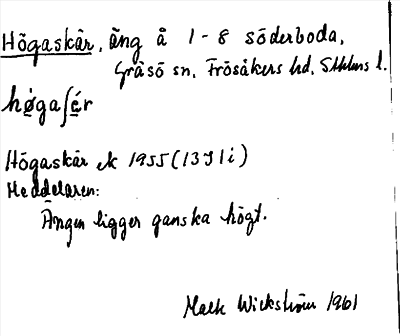 Högaskär, äng å 1-8 Söderboda,
Gräsö sn, Frösåkers hd, Sthlms l.
hø̱gaʃæ̱r
Högaskär ek 1955 (13I 1i)
Meddelaren:
Ängen ligger ganska högt.
Wickström 1961